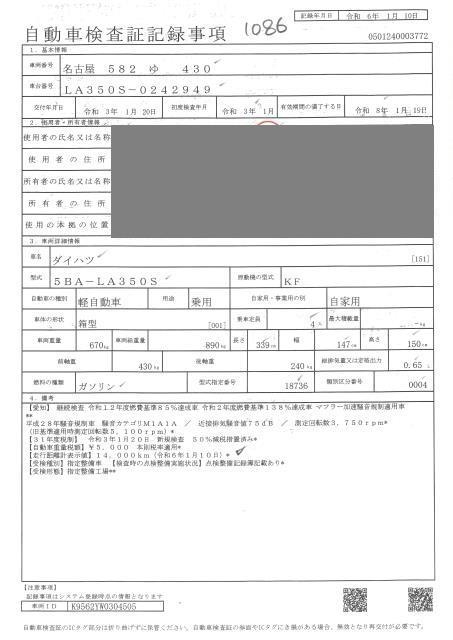 自動車検査証記録事項
1086
記録年月日 令和 6年 1月 10日
0501240003772
1．基本情報
車両番号 名古屋 582 ゆ 430
車台番号 LA350S-0242949
交付年月日 令和 3年 1月 20日 初度検査年月 令和 3年 1月 有効期間の満了する日 令和 8年 1月 19日
2．使用者・所有者情報
使用者の氏名又は名称
使用者の住所
所有者の氏名又は名称
所有者の住所
使用の本拠の位置
3．車両詳細情報
車名 ダイハツ [151]
型式 5BA-LA350S 原動機の型式 KF
自動車の種別 軽自動車 用途 乗用 自家用・事業用の別 自家用
車体の形状 箱型 [001] 乗車定員 4人 最大積載量 -kg
車両重量 670kg 車両総重量 890kg 長さ 339cm 幅 147cm 高さ 150cm
前軸重 430kg 後軸重 240kg 総排気量又は定格出力 0.65 L
燃料の種類 ガソリン 型式指定番号 18736 類別区分番号 0004
4．備考
【愛知】 継続検査 令和12年度燃費基準85％達成車 令和2年度燃費基準138％達成車 マフラー加速騒音規制適用車
**
平成28年騒音規制車 騒音カテゴリM1A1A ／ 近接排気騒音値75dB ／ 測定回転数3,750rpm*
(旧基準適用時測定回転数5,100rpm)*
【31年度税制】 令和3年1月20日 新規検査 50％減税措置済み*
【自動車重量税額】￥5,000 本則税率適用*
【走行距離計表示値】14,000km (令和6年1月10日)*
【受検種別】指定整備車 【検査時の点検整備実施状況】点検整備記録簿記載あり*
【受検形態】指定整備工場**
【注意事項】
記録事項はシステム登録時点の情報となります
車両ID K9562YW0304505
自動車検査証のICタグ部分は折り曲げずに保管ください。自動車検査証の券面やICタグにき損がある場合、無効となり再交付が必要です。